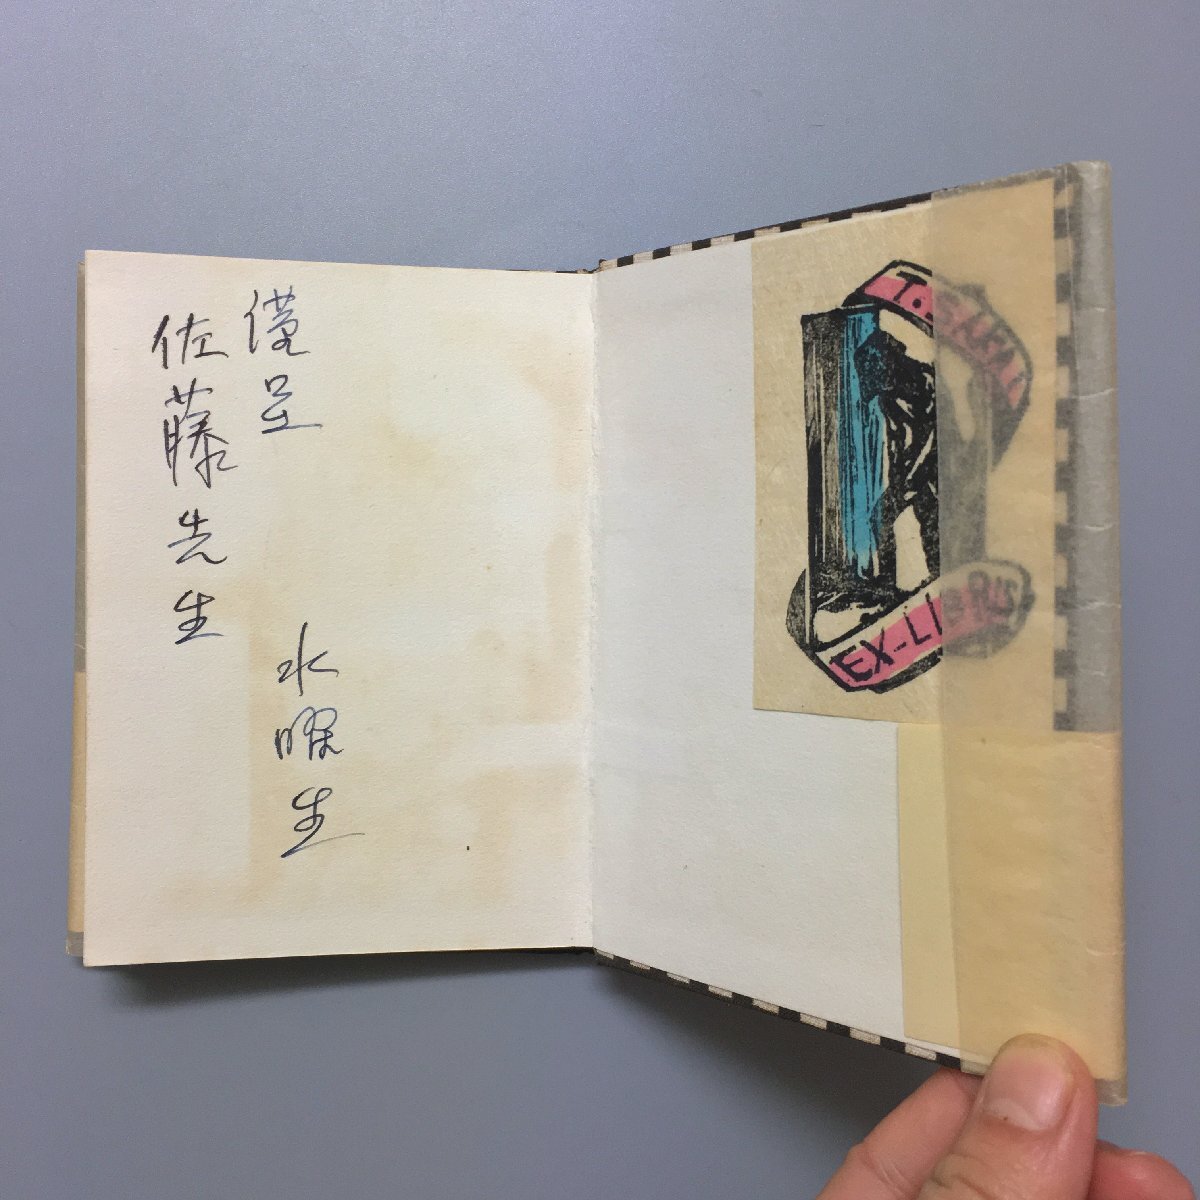 謹呈
水曜生
佐藤先生
T. SAKAI
EX-LIBRIS